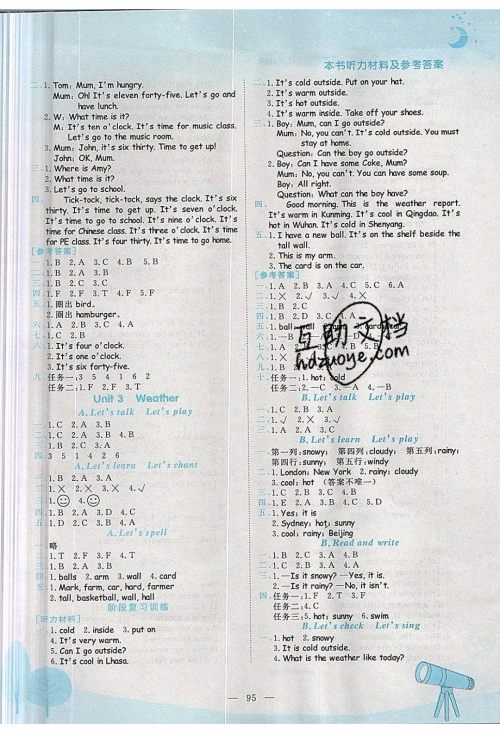 本书听力材料及参考答案
二、1. Tom: Mum, I'm hungry.
Mum: Oh! It's eleven forty-five. Let's go and
have lunch.
2. W: What time is it?
M: It's ten o'clock. It's time for music class.
Let's go to the music room.
3. Mum: John, it's six thirty. Time to get up!
John: OK, Mum.
三、1. Where is Amy?
2. What time is it?
3. Let's go to school.
四、 Tick-tock, tick-tock, says the clock. It's six
thirty. It's time to get up. It's seven o'clock.
It's time to go to school. It's nine o'clock. It's
time for Chinese class. It's three o'clock. It's time
for PE class. It's four thirty. It's time to go home.
[参考答案]
一、1. B 2. A 3. C 4. B 5. B
二、1. B 2. A 3. B
三、1. B 2. C 3. C
四、1. F 2. F 3. T 4. F 5. F
五、1. 圈出 bird。
2. 圈出 hamburger。
六、1. A 2. B 3. C 4. A
七、1. C 2. B
八、1. It's four o'clock.
2. It's one o'clock.
3. It's six forty-five.
九、任务一:3 5 4 1 6 2
任务二:1. F 2. F 3. T
Unit 3 Weather
A. Let's talk Let's play
一、1. C 2. A 3. B
二、1. C 2. A 3. B 4. B
三、1. B 2. C 3. A
四、3 5 1 4 2 6
A. Let's learn Let's chant
一、1. B 2. A 3. A
二、1. × 2. × 3. × 4. √
三、1. 4.
四、1. B 2. A 3. D 4. C
五、1. D 2. C 3. B 4. A
A. Let's spell
一、略
二、1. T 2. F 3. F 4. T
三、1. B 2. A 3. B
四、1. balls 2. arm 3. wall 4. card
五、1. Mark, farm, car, hard, farmer
2. tall, basketball, wall, hall
阶段复习训练
[听力材料]
一、1. cold 2. inside 3. put on
4. It's very warm.
5. Can I go outside?
6. It's cool in Lhasa.
二、1. It's cold outside. Put on your hat.
2. It's warm outside.
3. It's hot outside.
4. It's warm inside. Take off your shoes.
三、1. Boy: Mum, can I go outside?
Mum: No, you can't. It's cold outside. You must
stay at home.
Question: Can the boy go outside?
2. Boy: Can I have some Coke, Mum?
Mum: No, you can't. You can have some soup.
Boy: All right.
Question: What can the boy have?
四、 Good morning. This is the weather report.
It's warm in Kunming. It's cool in Qingdao. It's
hot in Wuhan. It's cold in Shenyang.
五、1. I have a new ball. It's on the shelf beside the
tall wall.
2. This is my arm.
3. The card is on the car.
[参考答案]
一、1. A 2. B 3. A 4. C 5. C 6. A
二、1. × 2. √ 3. √ 4. ×
三、1. B 2. C
四、1. B 2. D 3. C 4. A
五、1. ball
互助文档
hdzuoye.com
十、任务一:1. hot; cold
任务二:2. —C 3. —A 4. —B
B. Let's talk Let's play
一、1. C 2. B 3. A
二、1. √ 2. × 3. √
三、1. A 2. A 3. C
B. Let's learn Let's play
一、第一列:snowy; 第四列:cloudy; 第五列:rainy;
第四行:sunny; 第五行:windy
二、1. London; New York 2. rainy; cloudy
3. cool; hot (答案不唯一)
三、1. C 2. B 3. C 4. B
四、1. E 2. A 3. B 4. C 5. D
五、1. Yes; it is
2. Sydney; hot; sunny
3. cool; rainy; Beijing
B. Read and write
一、1. B 2. C 3. A 4. B
二、1. C 2. B 3. A 4. A
三、1. —Is it snowy? —Yes, it is.
2. —Is it rainy? —No, it isn't.
四、任务一:1. F 2. T 3. F
任务二:4. C
任务三:5. hot; sunny 6. swim
B. Let's check Let's sing
一、1. hot 2. snowy
3. It is cold outside.
4. What is the weather like today?
— 95 —